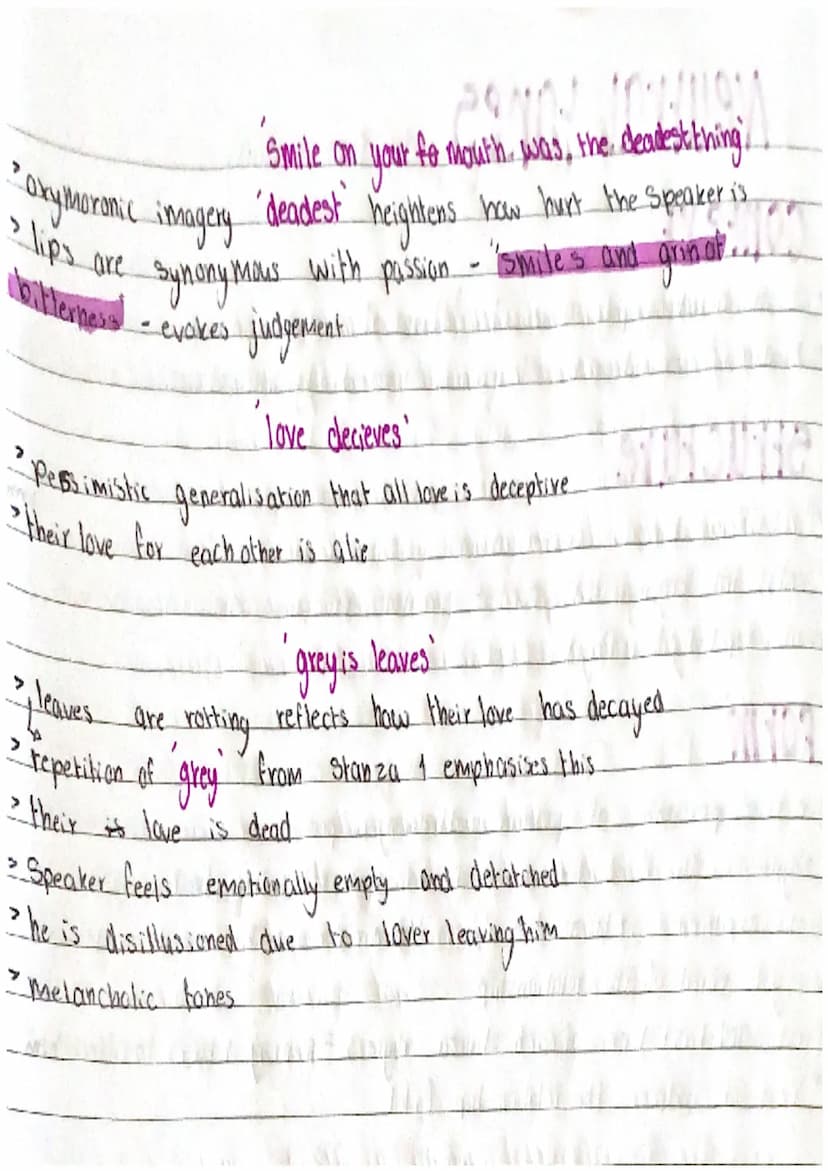 'Smile on your fo mouth was, the deadest thing'
> oxymoronic imagery 'deadest' heightens how hurt the speaker is
> lips are synonymous with passion - "smiles and grin of
bitterness" - evokes judgement
'love decieves'
> pessimistic generalisation that all love is deceptive
> their love for each other is a lie
'greyis leaves'
> leaves are rotting reflects how their love has decayed
> repetition of 'grey' from Stanza 1 emphasises this
> their is love is dead
> Speaker feels emotionally empty and detatched
> he is disillusioned due to lover leaving him
> Melancholic tones